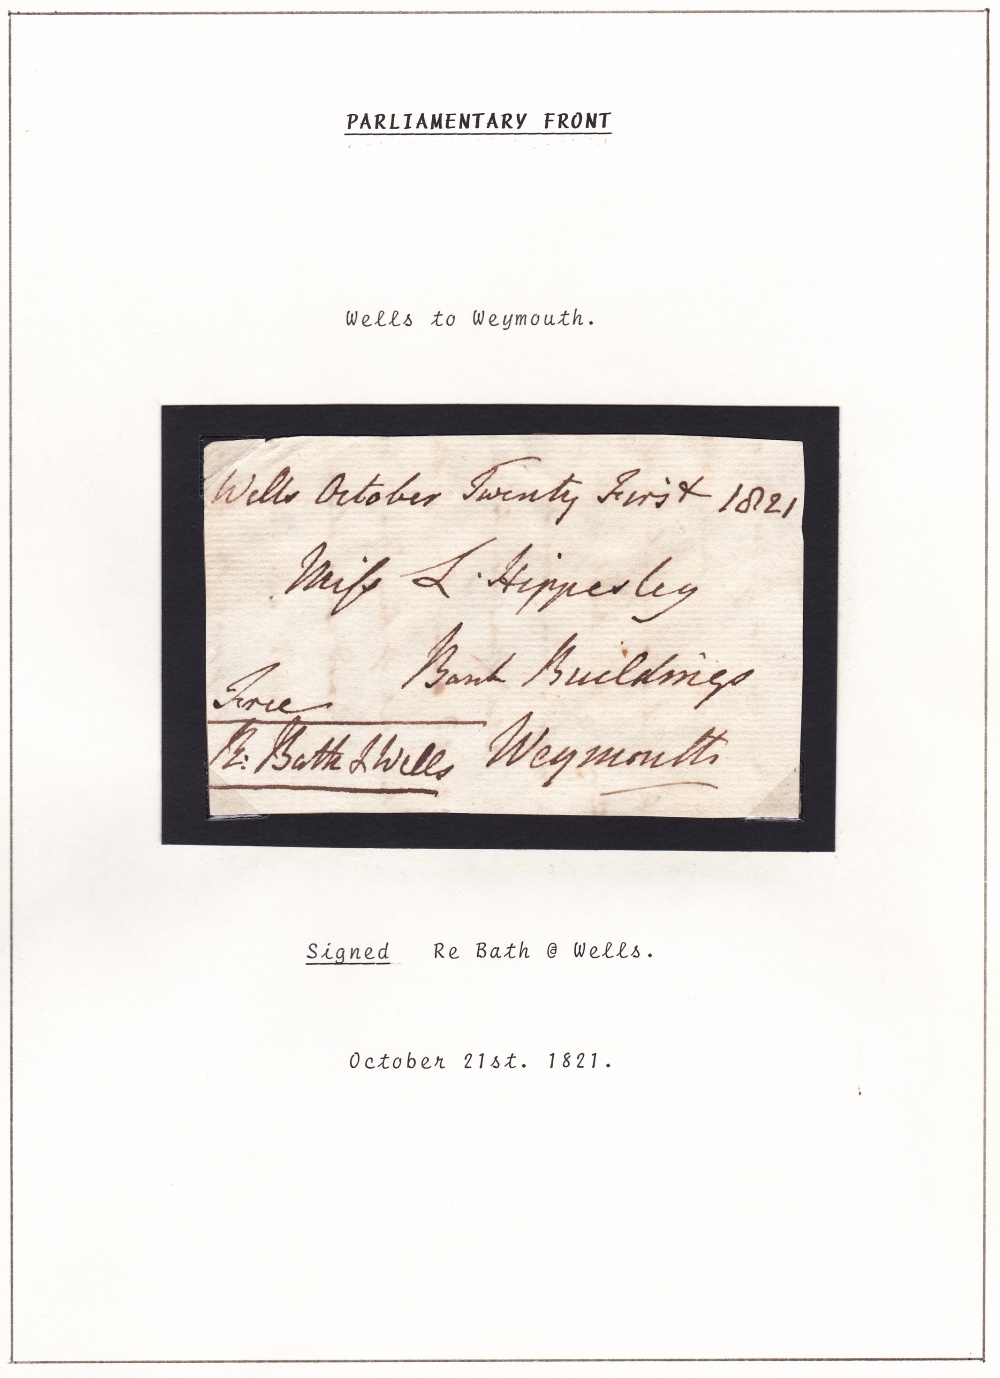 PARLIAMENTARY FRONT
Wells to Weymouth.
Wells October Twenty First 1821
Miſs L. Hippesley
Bank Buildings
Free
R: Bath & Wells
Weymouth
Signed Re Bath @ Wells.
October 21st. 1821.